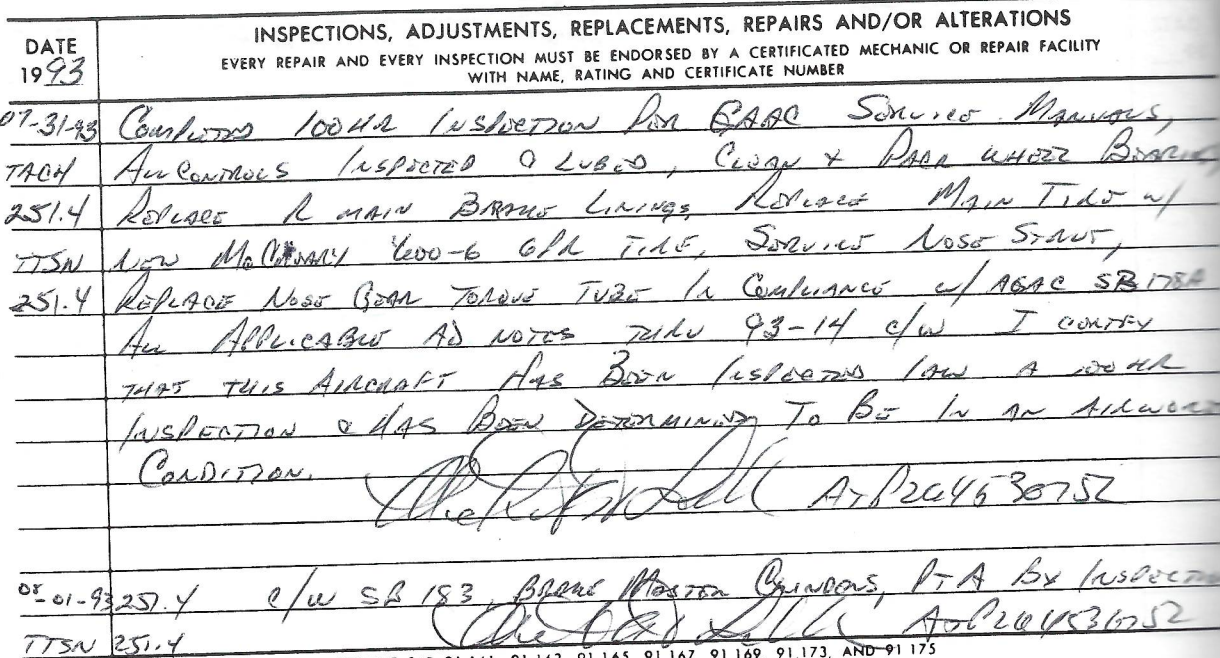 INSPECTIONS, ADJUSTMENTS, REPLACEMENTS, REPAIRS AND/OR ALTERATIONS
DATE
EVERY REPAIR AND EVERY INSPECTION MUST BE ENDORSED BY A CERTIFICATED MECHANIC OR REPAIR FACILITY
1993
WITH NAME, RATING AND CERTIFICATE NUMBER
07-31-93 COMPLETED 100HR INSPECTION PER SERVICE MANUALS,
TACH ALL CONTROLS INSPECTED & LUBED, CLEAN & PACK WHEEL
251.4 REPLACE R MAIN BRAKE LININGS, REPLACE MAIN TIRE W/
TTSN NEW 600-6 6PR TIRE, SERVICE NOSE STRUT,
251.4 REPLACE NOSE GEAR TORQUE TUBE IN COMPLIANCE W/ AGAC SB 178A
ALL APPLICABLE AD NOTES THRU 93-14 C/W I CERTIFY
THAT THIS AIRCRAFT HAS BEEN INSPECTED IAW A 100HR
INSPECTION & HAS BEEN DETERMINED TO BE IN AN
CONDITION.
08-01-93 251.4 C/W SB 183, BRAKE MASTER CYLINDERS, BY
TTSN 251.4
91.165, 91.167, 91.169, 91.173, AND 91.175